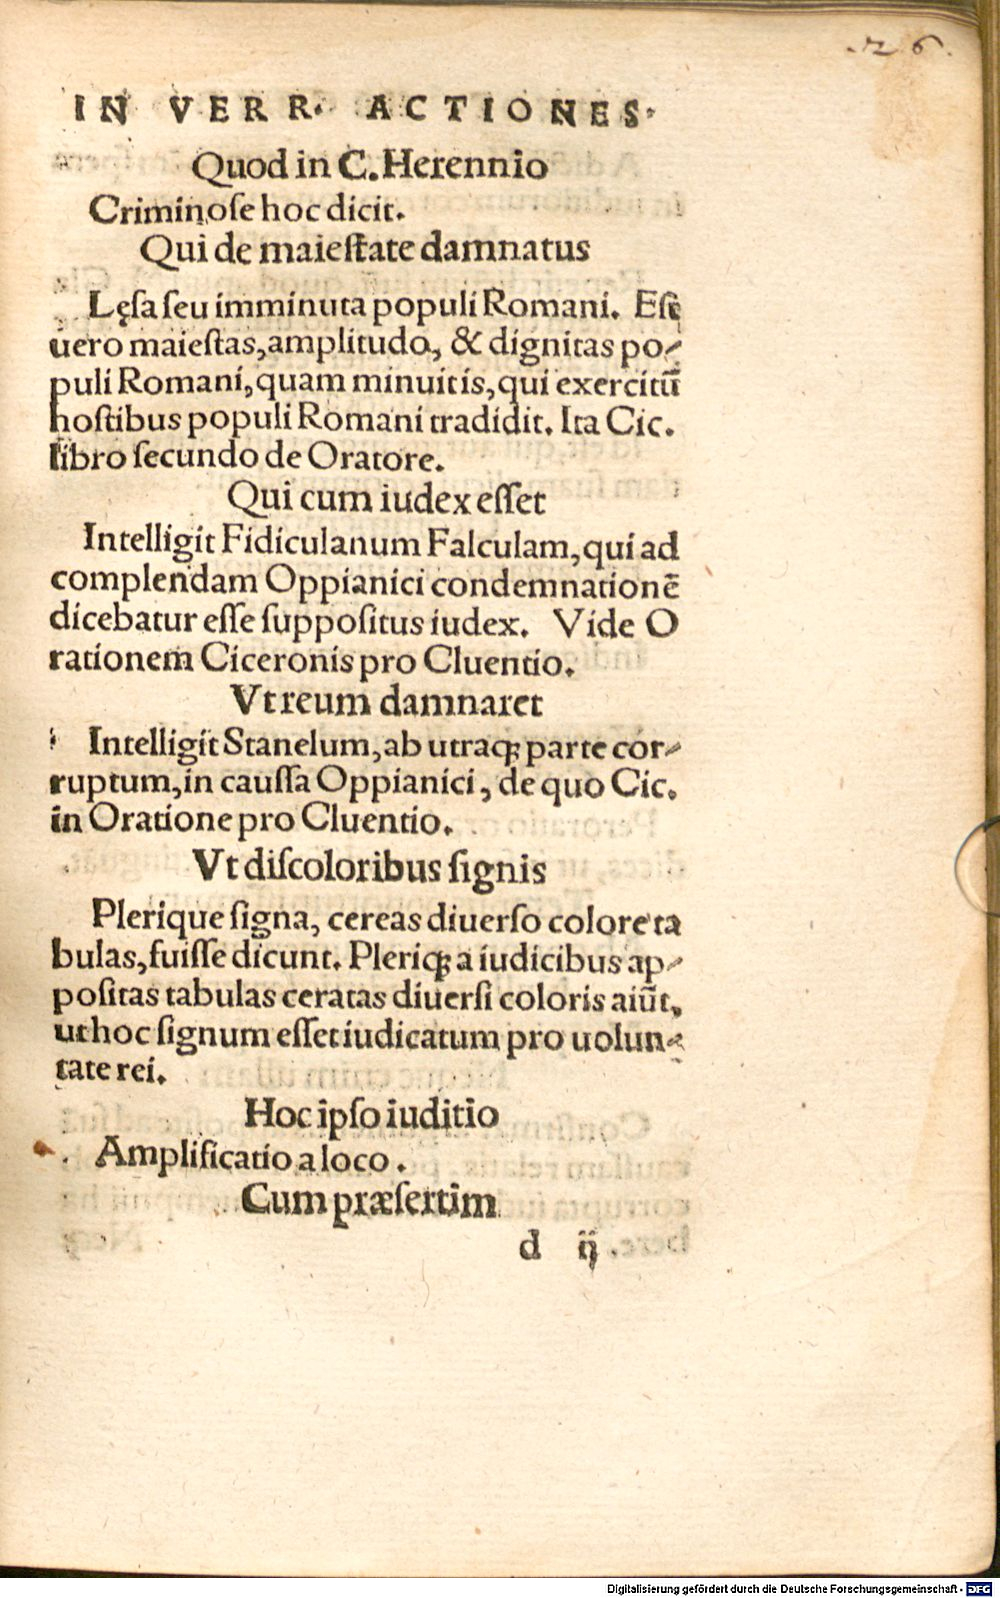 .26.
IN VERR. ACTIONES.
Quod in C. Herennio
Criminoſe hoc dicit.
Qui de maieſtate damnatus
Lęſa ſeu imminuta populi Romani. Eſt
uero maieſtas, amplitudo, & dignitas po-
puli Romani, quam minuitis, qui exercitũ
hoſtibus populi Romani tradidit. Ita Cic.
libro ſecundo de Oratore.
Qui cum iudex eſſet
Intelligit Fidiculanum Falculam, qui ad
complendam Oppianici condemnationẽ
dicebatur eſſe ſuppoſitus iudex. Vide O
rationem Ciceronis pro Cluentio.
Vt reum damnaret
Intelligit Stanelum, ab utraq; parte cor-
ruptum, in cauſſa Oppianici, de quo Cic.
in Oratione pro Cluentio.
Vt diſcoloribus ſignis
Plerique ſigna, cereas diuerſo colore ta
bulas, fuiſſe dicunt. Pleriq; a iudicibus ap-
poſitas tabulas ceratas diuerſi coloris aiũt,
ut hoc ſignum eſſet iudicatum pro uolun-
tate rei.
Hoc ipſo iuditio
Amplificatio a loco.
Cum præſertim
d ij
Digitalisierung gefördert durch die Deutsche Forschungsgemeinschaft - DFG